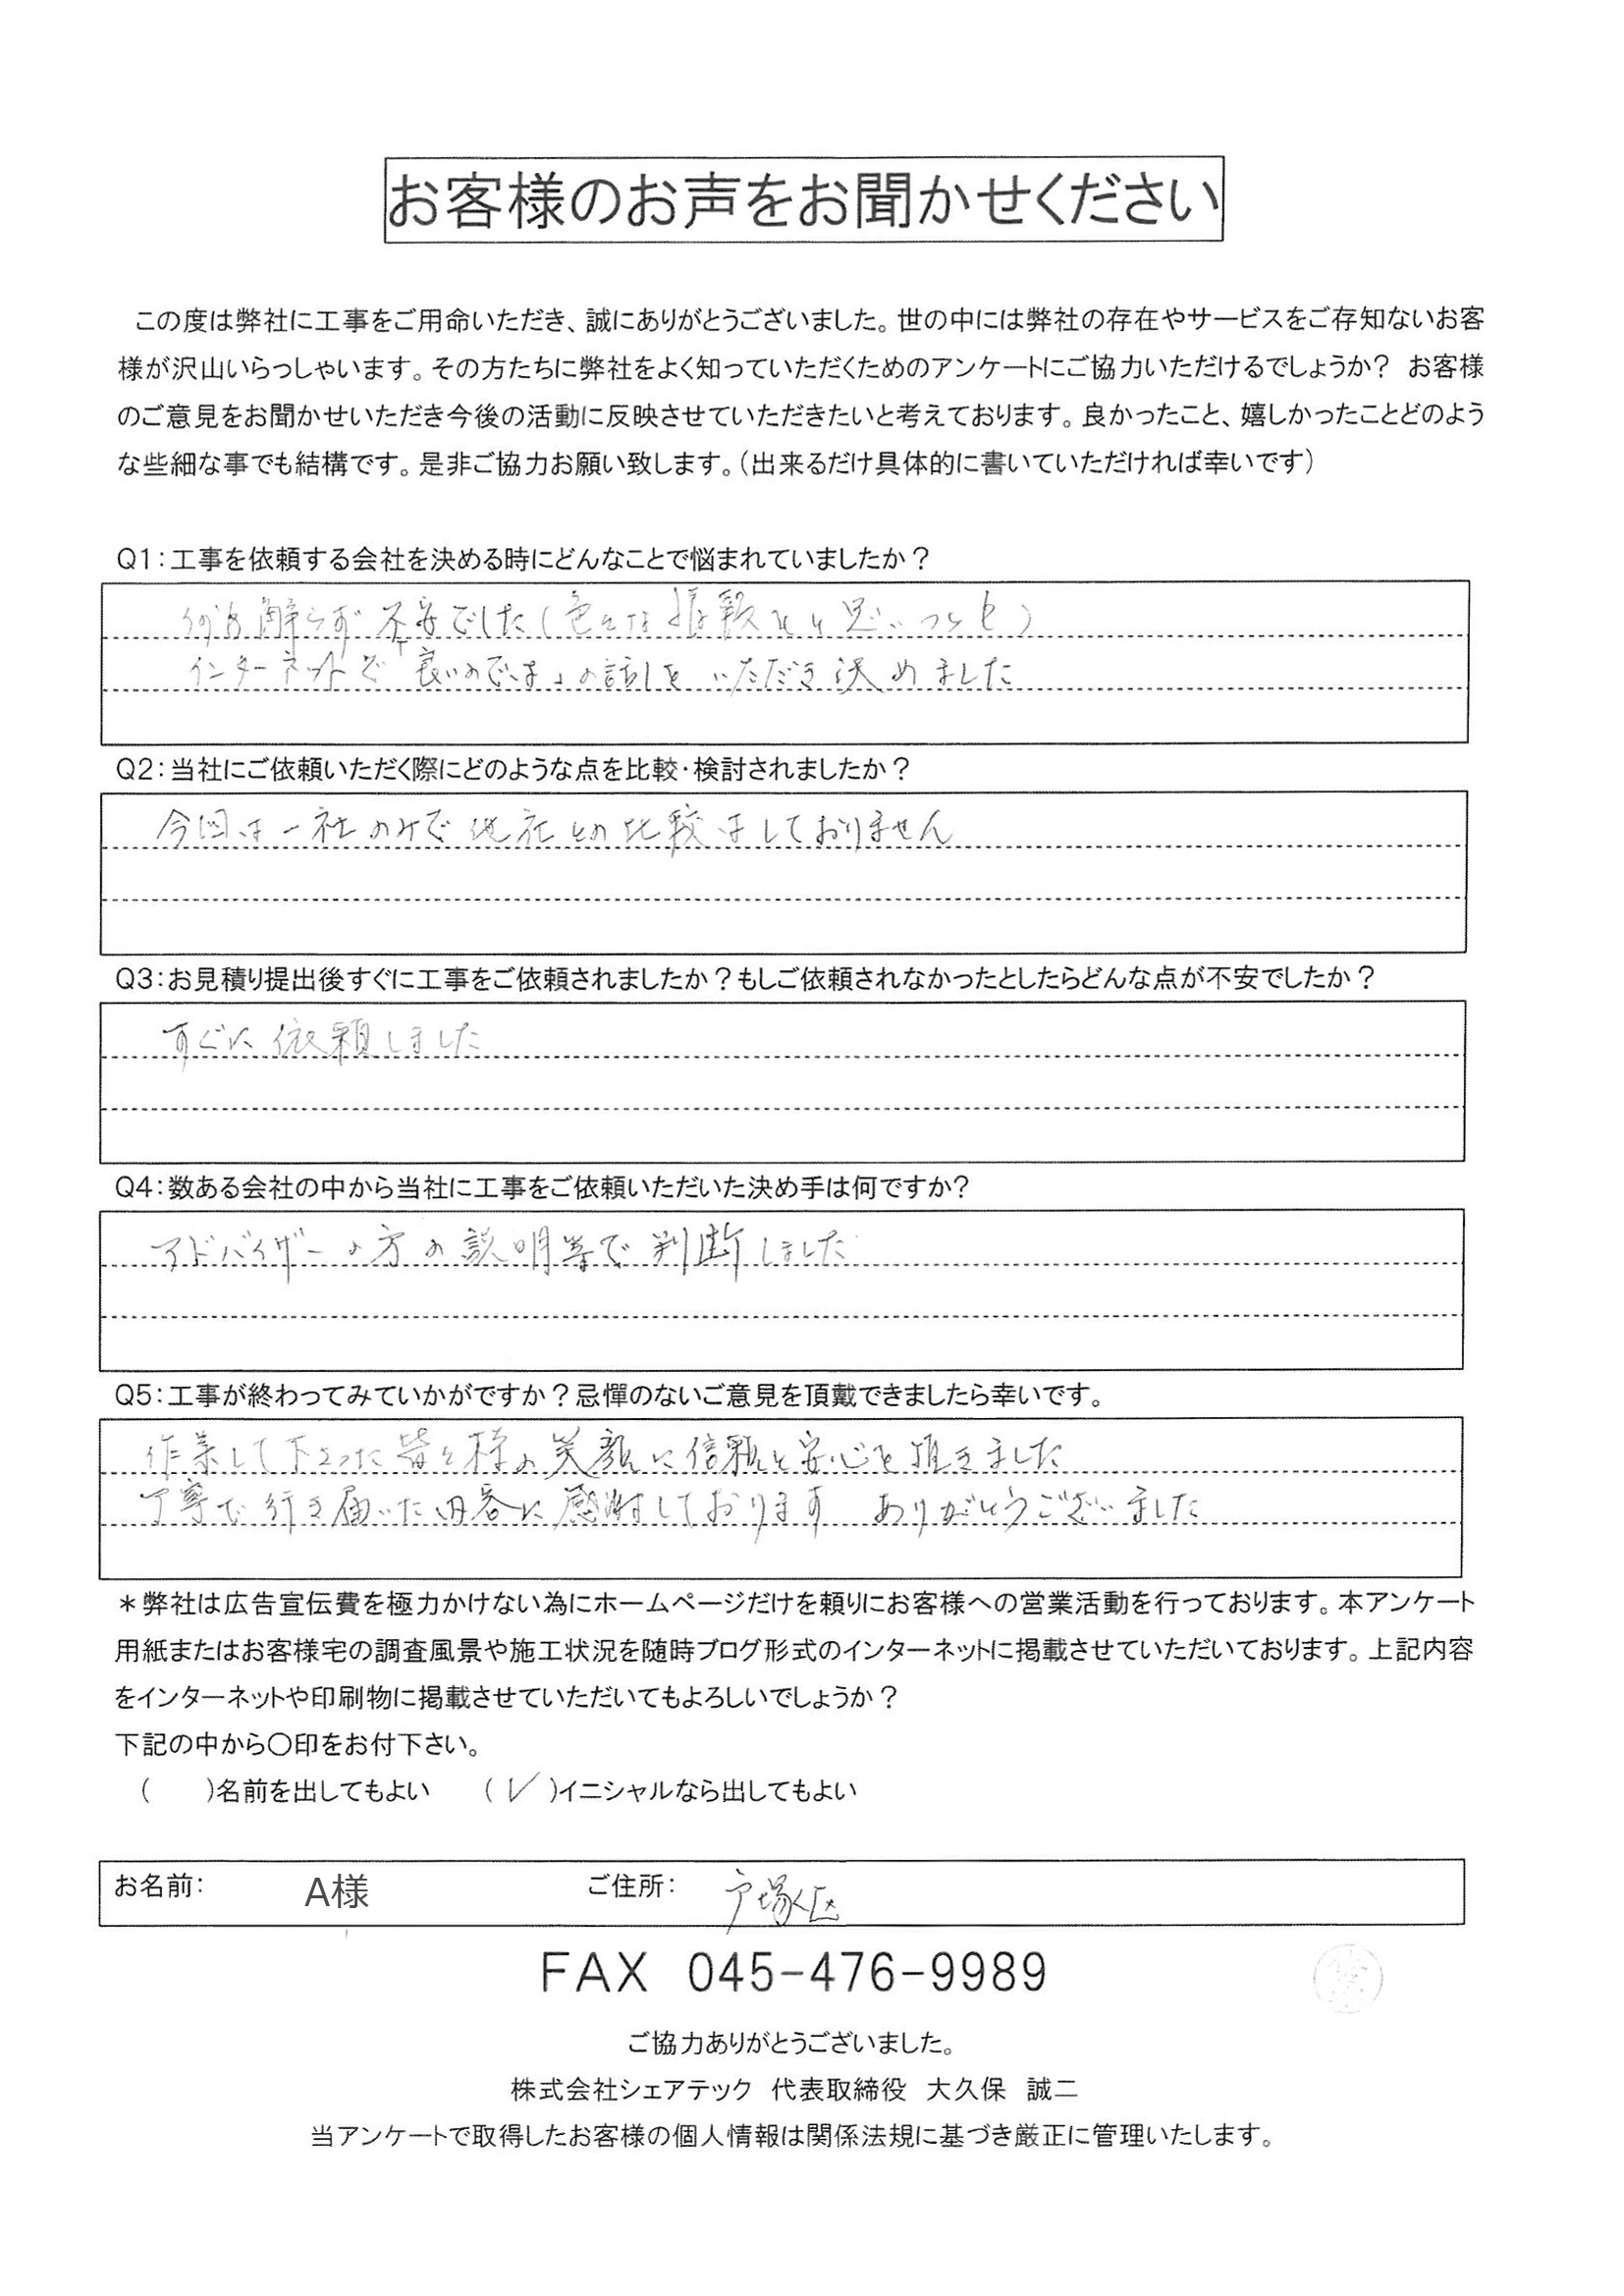 お客様のお声をお聞かせください
この度は弊社に工事をご用命いただき、誠にありがとうございました。世の中には弊社の存在やサービスをご存知ないお客
様が沢山いらっしゃいます。その方たちに弊社をよく知っていただくためのアンケートにご協力いただけるでしょうか？ お客様
のご意見をお聞かせいただき今後の活動に反映させていただきたいと考えております。良かったこと、嬉しかったことどのよう
な些細な事でも結構です。是非ご協力お願い致します。（出来るだけ具体的に書いていただければ幸いです）
Q1：工事を依頼する会社を決める時にどんなことで悩まれていましたか？
何も解らず不安でした（色々な
インターネットで「良いのでは」の話しをいただき決めました
Q2：当社にご依頼いただく際にどのような点を比較・検討されましたか？
今回は一社のみで他社との比較はしておりません
Q3：お見積り提出後すぐに工事をご依頼されましたか？もしご依頼されなかったとしたらどんな点が不安でしたか？
すぐに依頼しました
Q4：数ある会社の中から当社に工事をご依頼いただいた決め手は何ですか？
アドバイザーの方の説明等で判断しました
Q5：工事が終わってみていかがですか？忌憚のないご意見を頂戴できましたら幸いです。
作業して下さった皆々様の笑顔に信頼と安心を頂きました
丁寧で行き届いた内容に感謝しております ありがとうございました
＊弊社は広告宣伝費を極力かけない為にホームページだけを頼りにお客様への営業活動を行っております。本アンケート
用紙またはお客様宅の調査風景や施工状況を随時ブログ形式のインターネットに掲載させていただいております。上記内容
をインターネットや印刷物に掲載させていただいてもよろしいでしょうか？
下記の中から〇印をお付下さい。
（　　）名前を出してもよい　　（ ✓ ）イニシャルなら出してもよい
お名前：　A様　ご住所：　戸塚区
FAX 045-476-9989
ご協力ありがとうございました。
株式会社シェアテック 代表取締役 大久保 誠二
当アンケートで取得したお客様の個人情報は関係法規に基づき厳正に管理いたします。